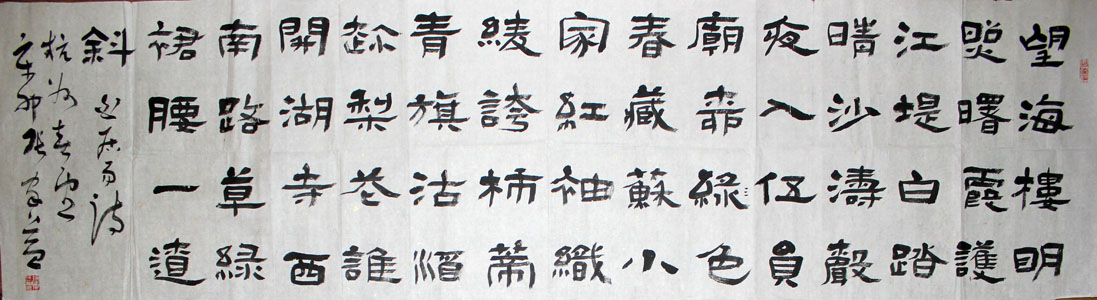 望海樓明
照曙霞護
江堤白踏
晴沙濤聲
夜入伍員
廟柳綠色
春藏蘇小
家紅袖織
綾誇柿蔕
青旗沽酒
趂梨花誰
開湖寺西
南路草綠
裙腰一道
斜 白居易詩
杭州春望
辛卯張